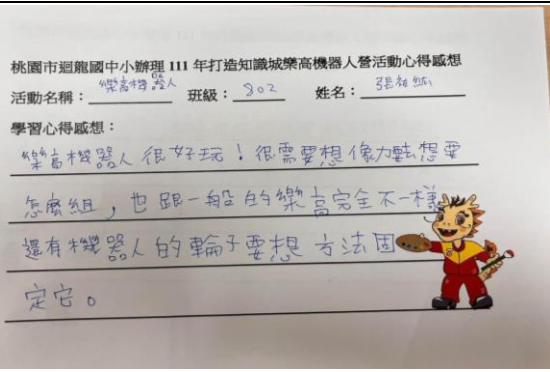 桃園市迴龍國中小辦理 111 年打造知識城樂高機器人營活動心得感想
活動名稱：樂高機器人 班級：802 姓名：張
學習心得感想：
樂高機器人很好玩！很需要想像力去想要
怎麼組，也跟一般的樂高完全不一樣
還有機器人的輪子要想方法固
定它。